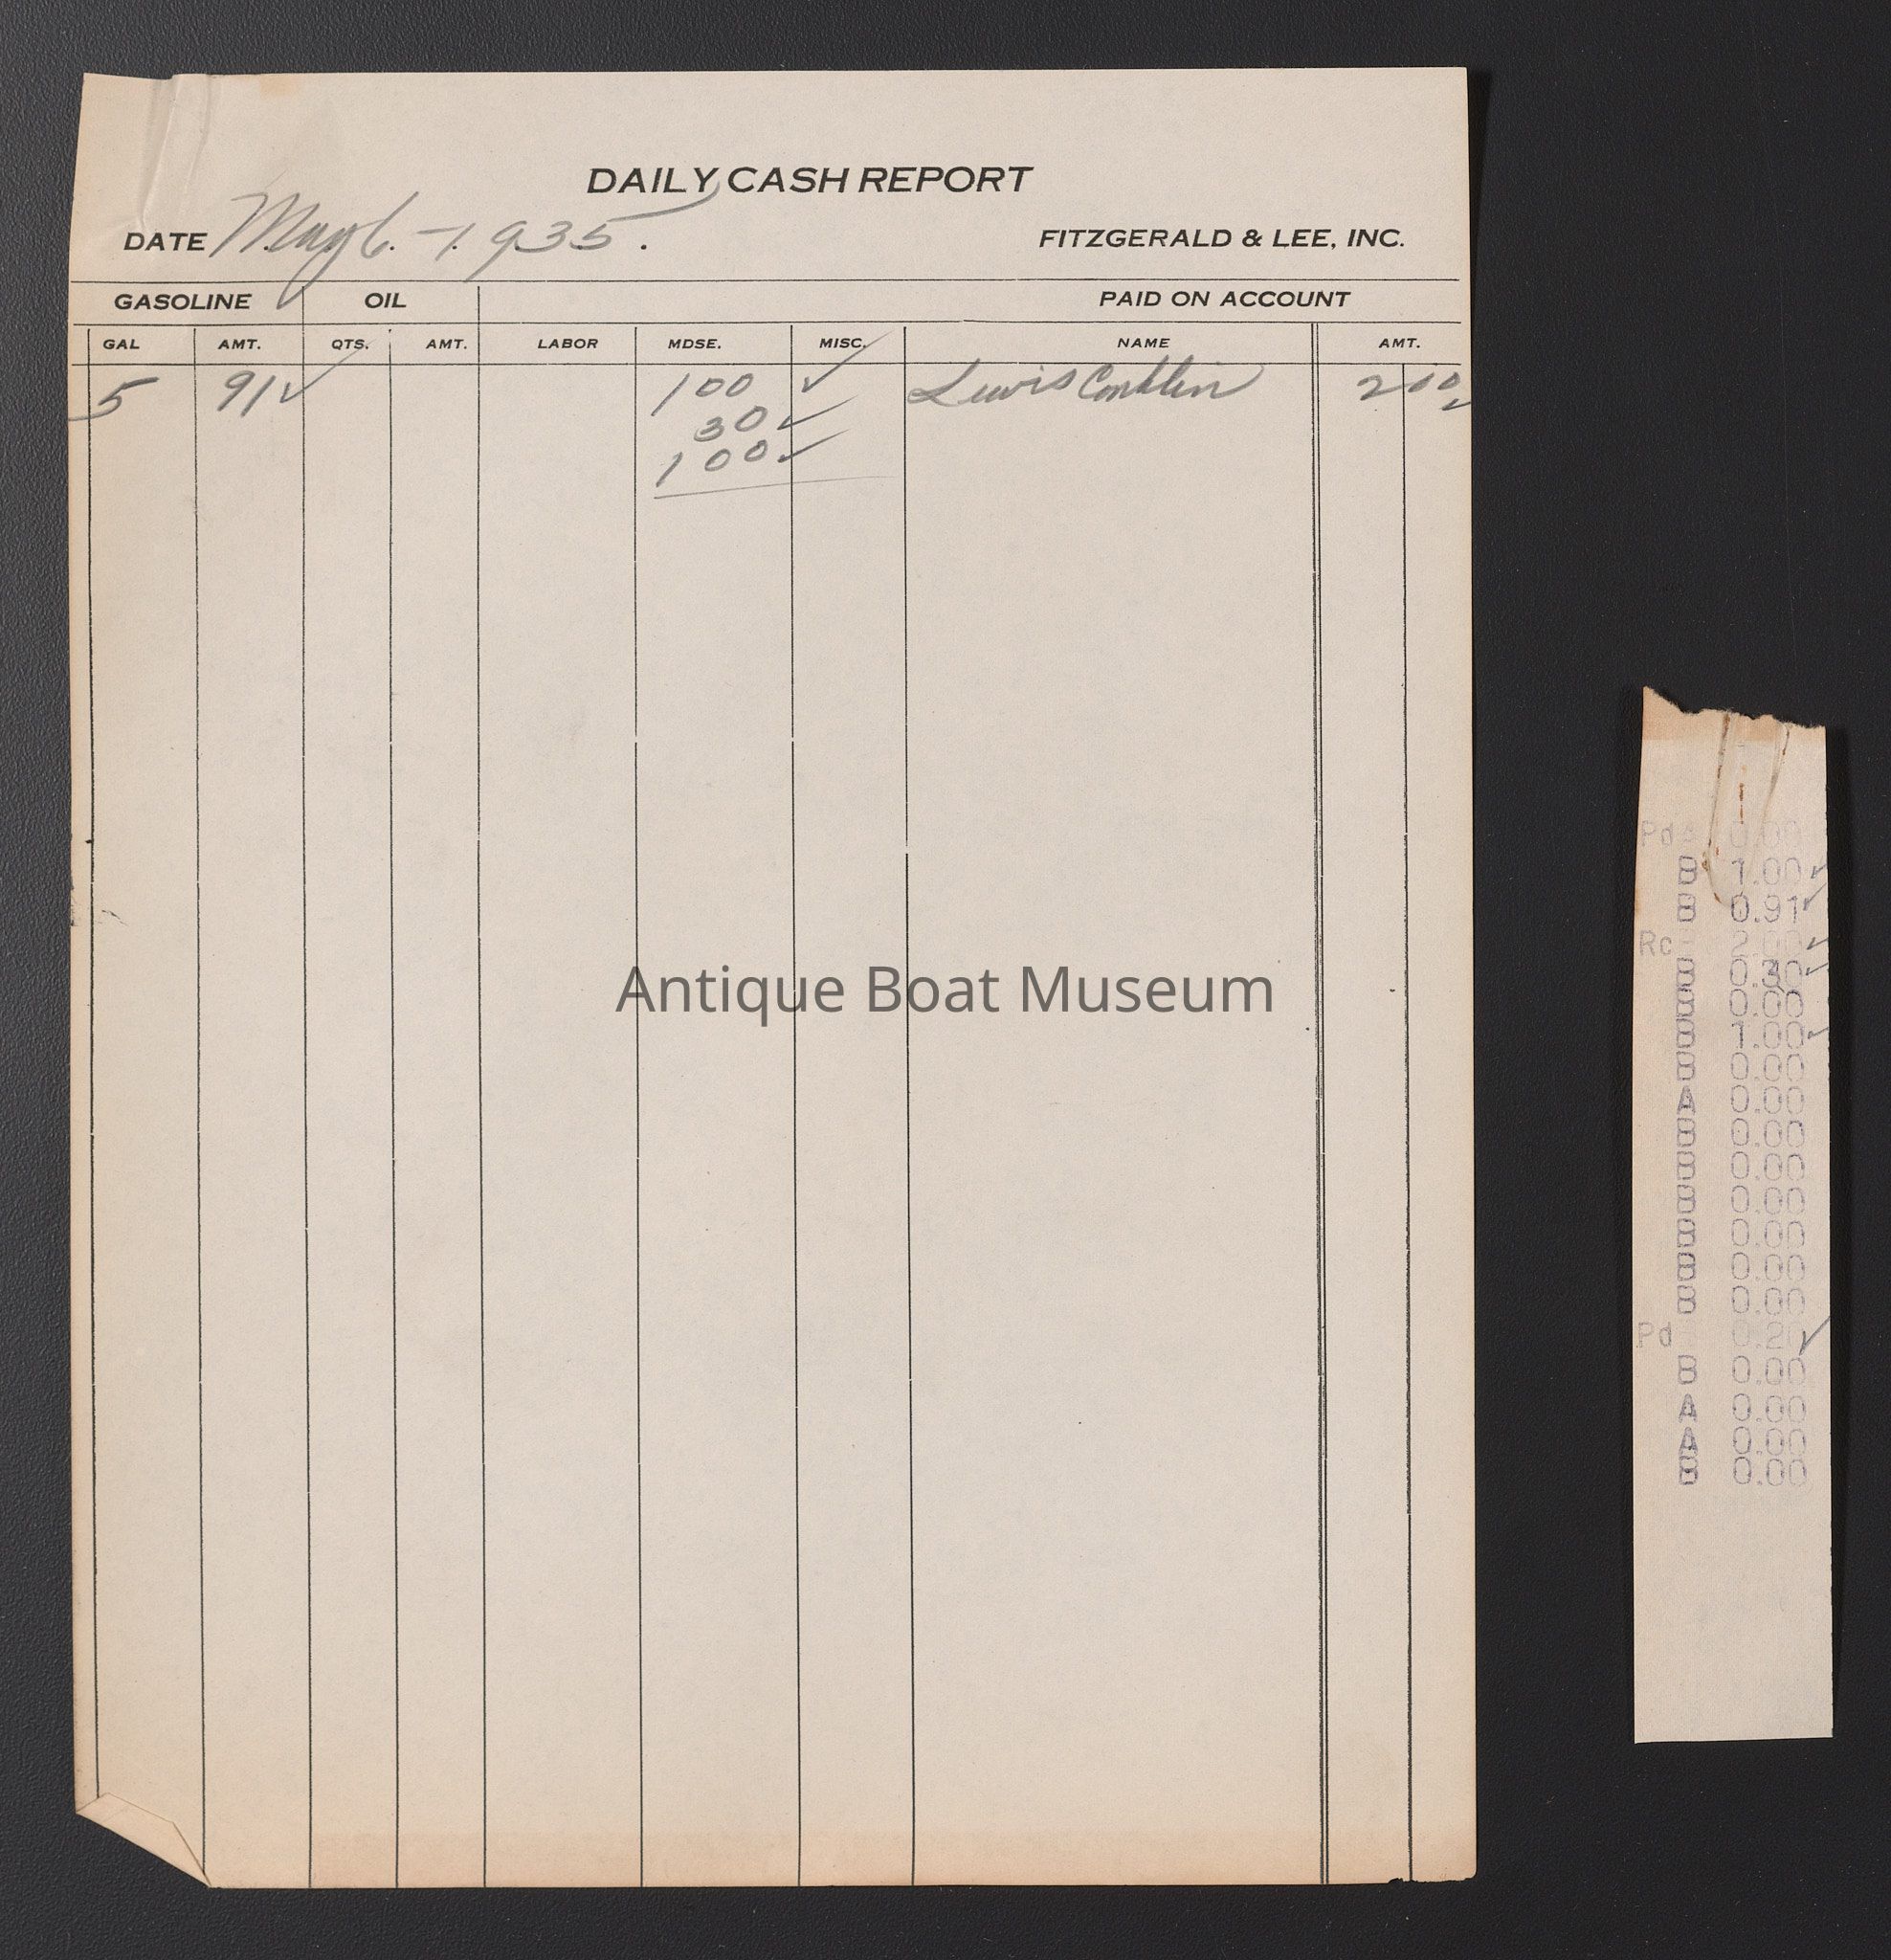 DAILY CASH REPORT
DATE May 6. - 1935.
FITZGERALD & LEE, INC.
GASOLINE OIL PAID ON ACCOUNT
GAL AMT. QTS. AMT. LABOR MDSE. MISC. NAME AMT.
5 91 ✓ 100 ✓ Lewis Conklin 200 ✓
30 ✓
100 ✓
Antique Boat Museum
Pd 0.00
B 1.00 ✓
B 0.91 ✓
Rc 2.00 ✓
B 0.30 ✓
B 0.00
B 1.00 ✓
B 0.00
A 0.00
B 0.00
B 0.00
B 0.00
B 0.00
B 0.00
B 0.00
Pd 0.20 ✓
B 0.00
A 0.00
A 0.00
B 0.00